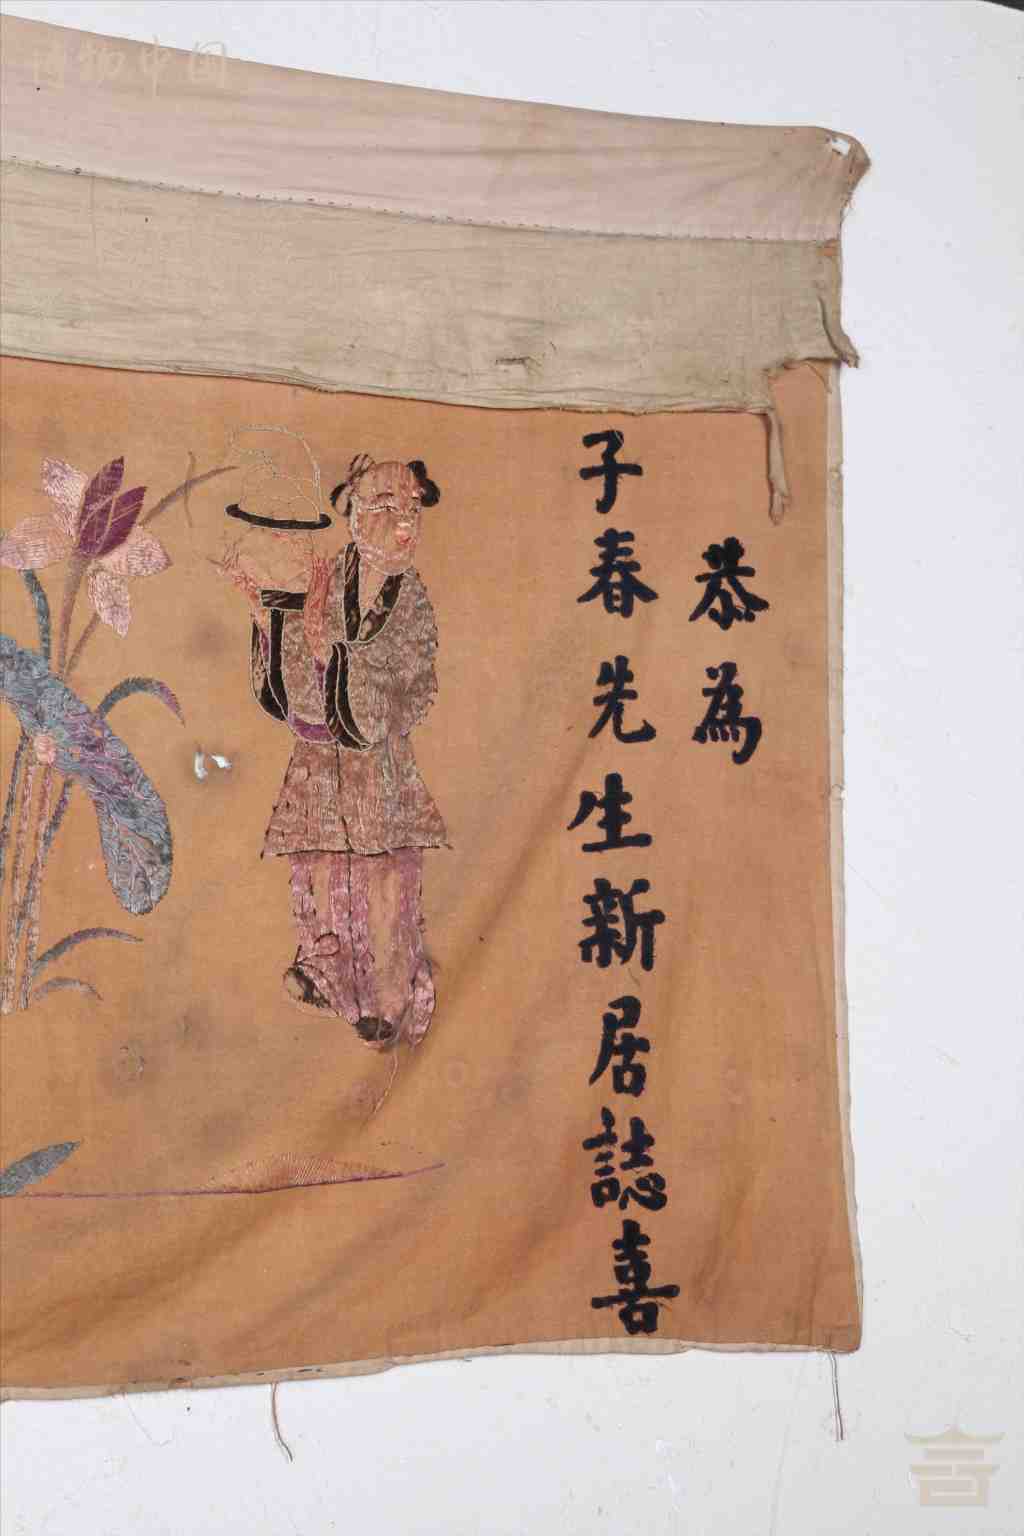 恭為
子春先生新居誌喜
博物中国